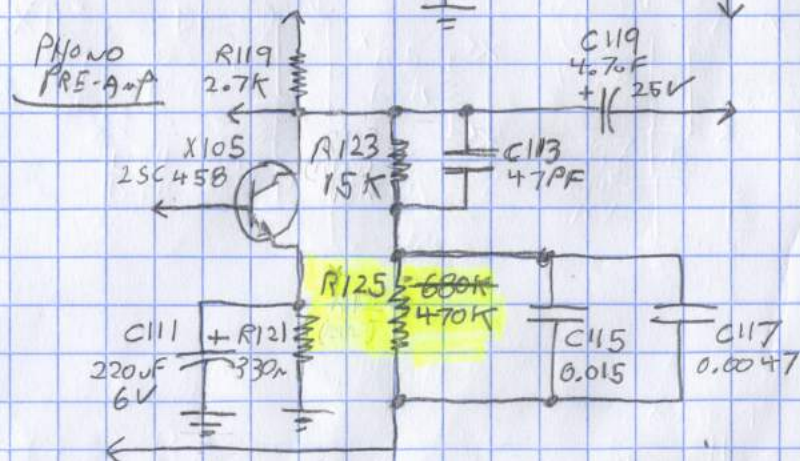 PHONO
PRE-AMP
R119
2.7K
C119
4.7uF
+ 25V
X105
2SC458
R123
15K
C113
47PF
R125
680K
470K
C111
220uF
6V
+
R121
330Ω
C115
0.015
C117
0.0047